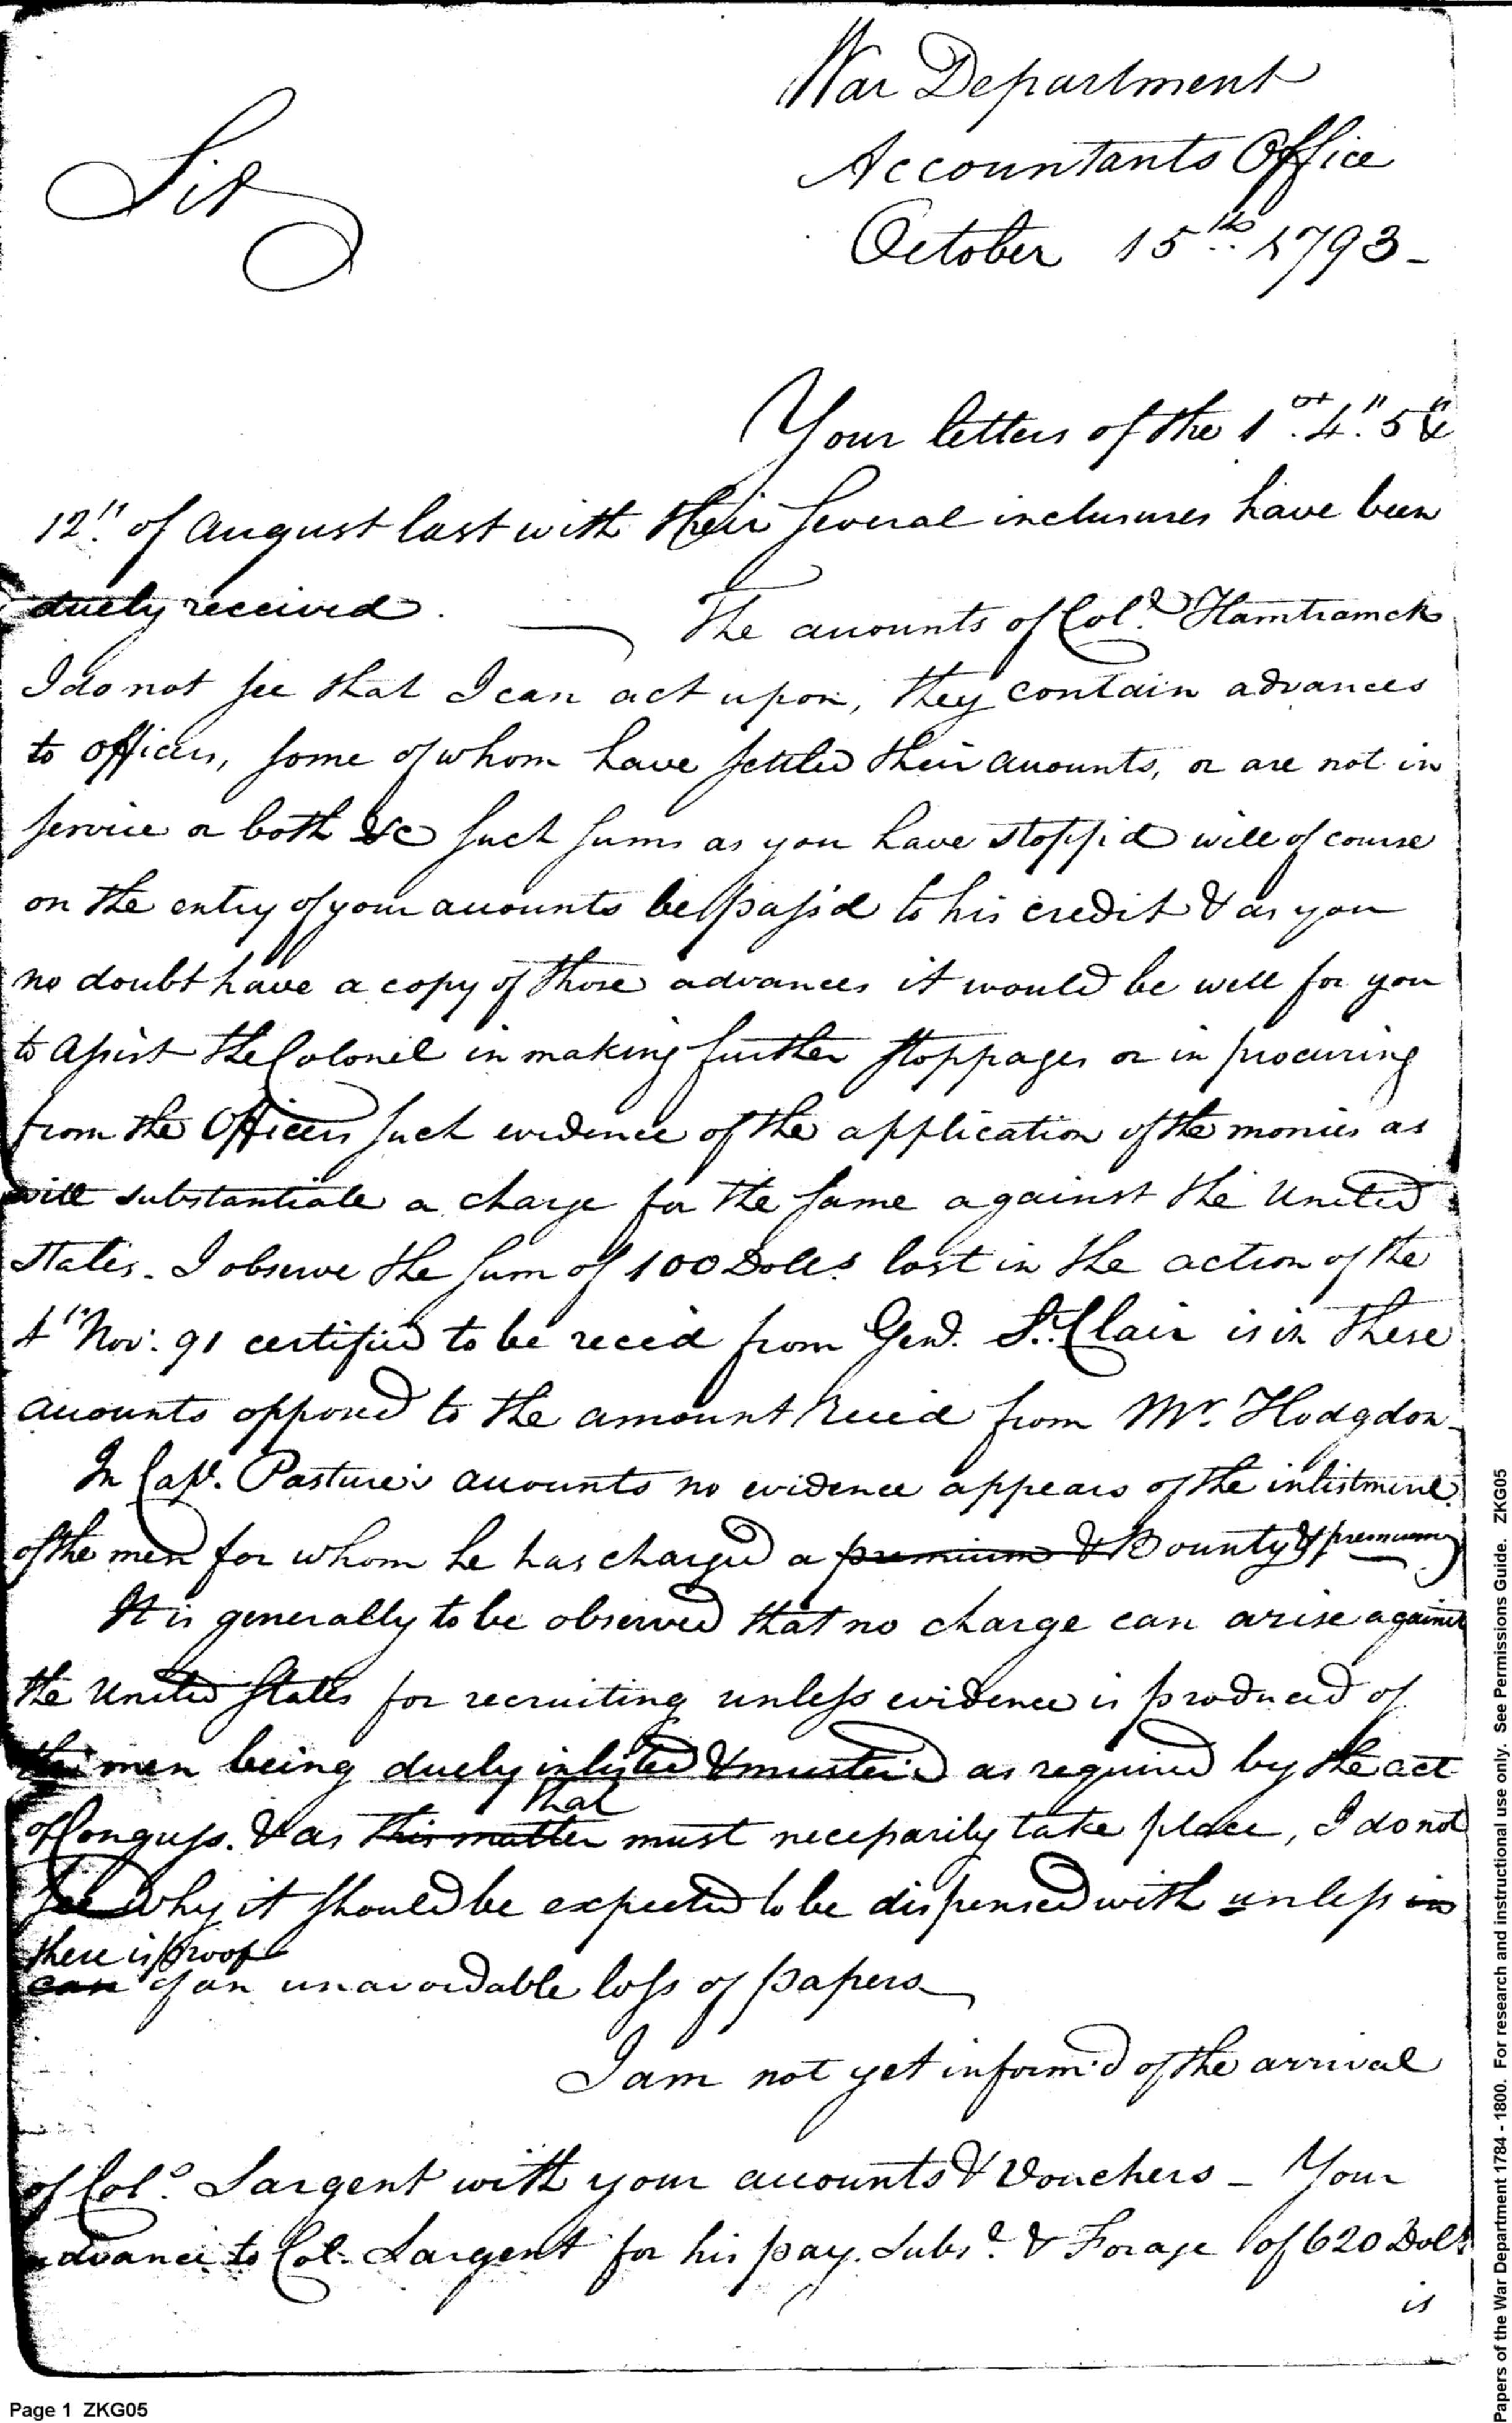 War Department
Accountants Office
October 15th 1793-
Sir
Your letters of the 1st. 4". 5" &
12". of August last with their several inclusures have been
duely received. The accounts of Colo. Hamtramck
I do not see that I can act upon, they contain advances
to officers, some of whom have settled their accounts, or are not in
service or both &c such sums as you have stopp'd will of course
on the entry of your accounts be pass'd to his credit & as you
no doubt have a copy of those advances it would be well for you
to assist the Colonel in making further stoppages or in procuring
from the Officers such evidence of the application of the monies as
will substantiate a charge for the same against the United
States. I observe the sum of 100 Dolls. lost in the action of the
4" Nov. 91 certified to be reced from Genl. St. Clair is in these
accounts opposed to the amount reced from Mr. Hodgdon
In Capt. Pasture's accounts no evidence appears of the inlistment
of the men for whom he has charged a premium & Bounty & premium
It is generally to be observed that no charge can arise against
the United States for recruiting unless evidence is produced of
the men being duely inlisted & muster'd as required by the act
that
of Congress. & as this matter must necessarily take place, I do not
see why it should be expected to be dispensed with unless in
there is proof
case of an unavoidable loss of papers
I am not yet inform'd of the arrival
of Colo. Sargent with your accounts & Vouchers - Your
advance to Col. Sargent for his pay. Subs. & Forage of 620 Dolls
is
Page 1 ZKG05
Papers of the War Department 1784 - 1800. For research and instructional use only. See Permissions Guide. ZKG05